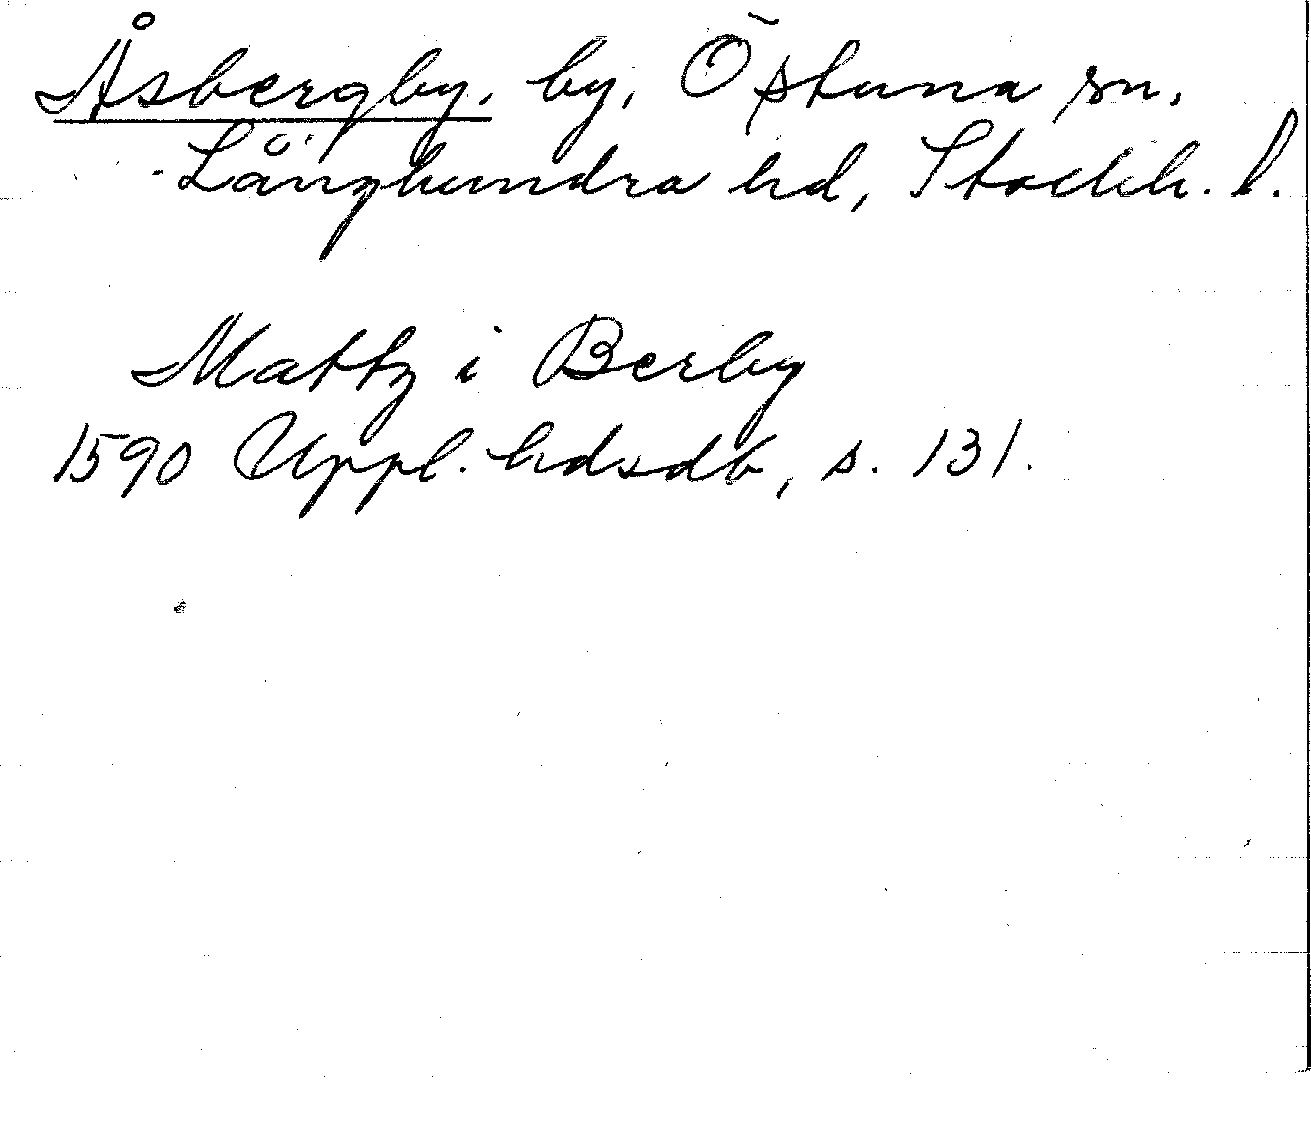 Åsbergby, by, Östuna sn,
Långhundra hd, Stockh. l.
Mattz i Berby
1590 Uppl. hdsdb, s. 131.